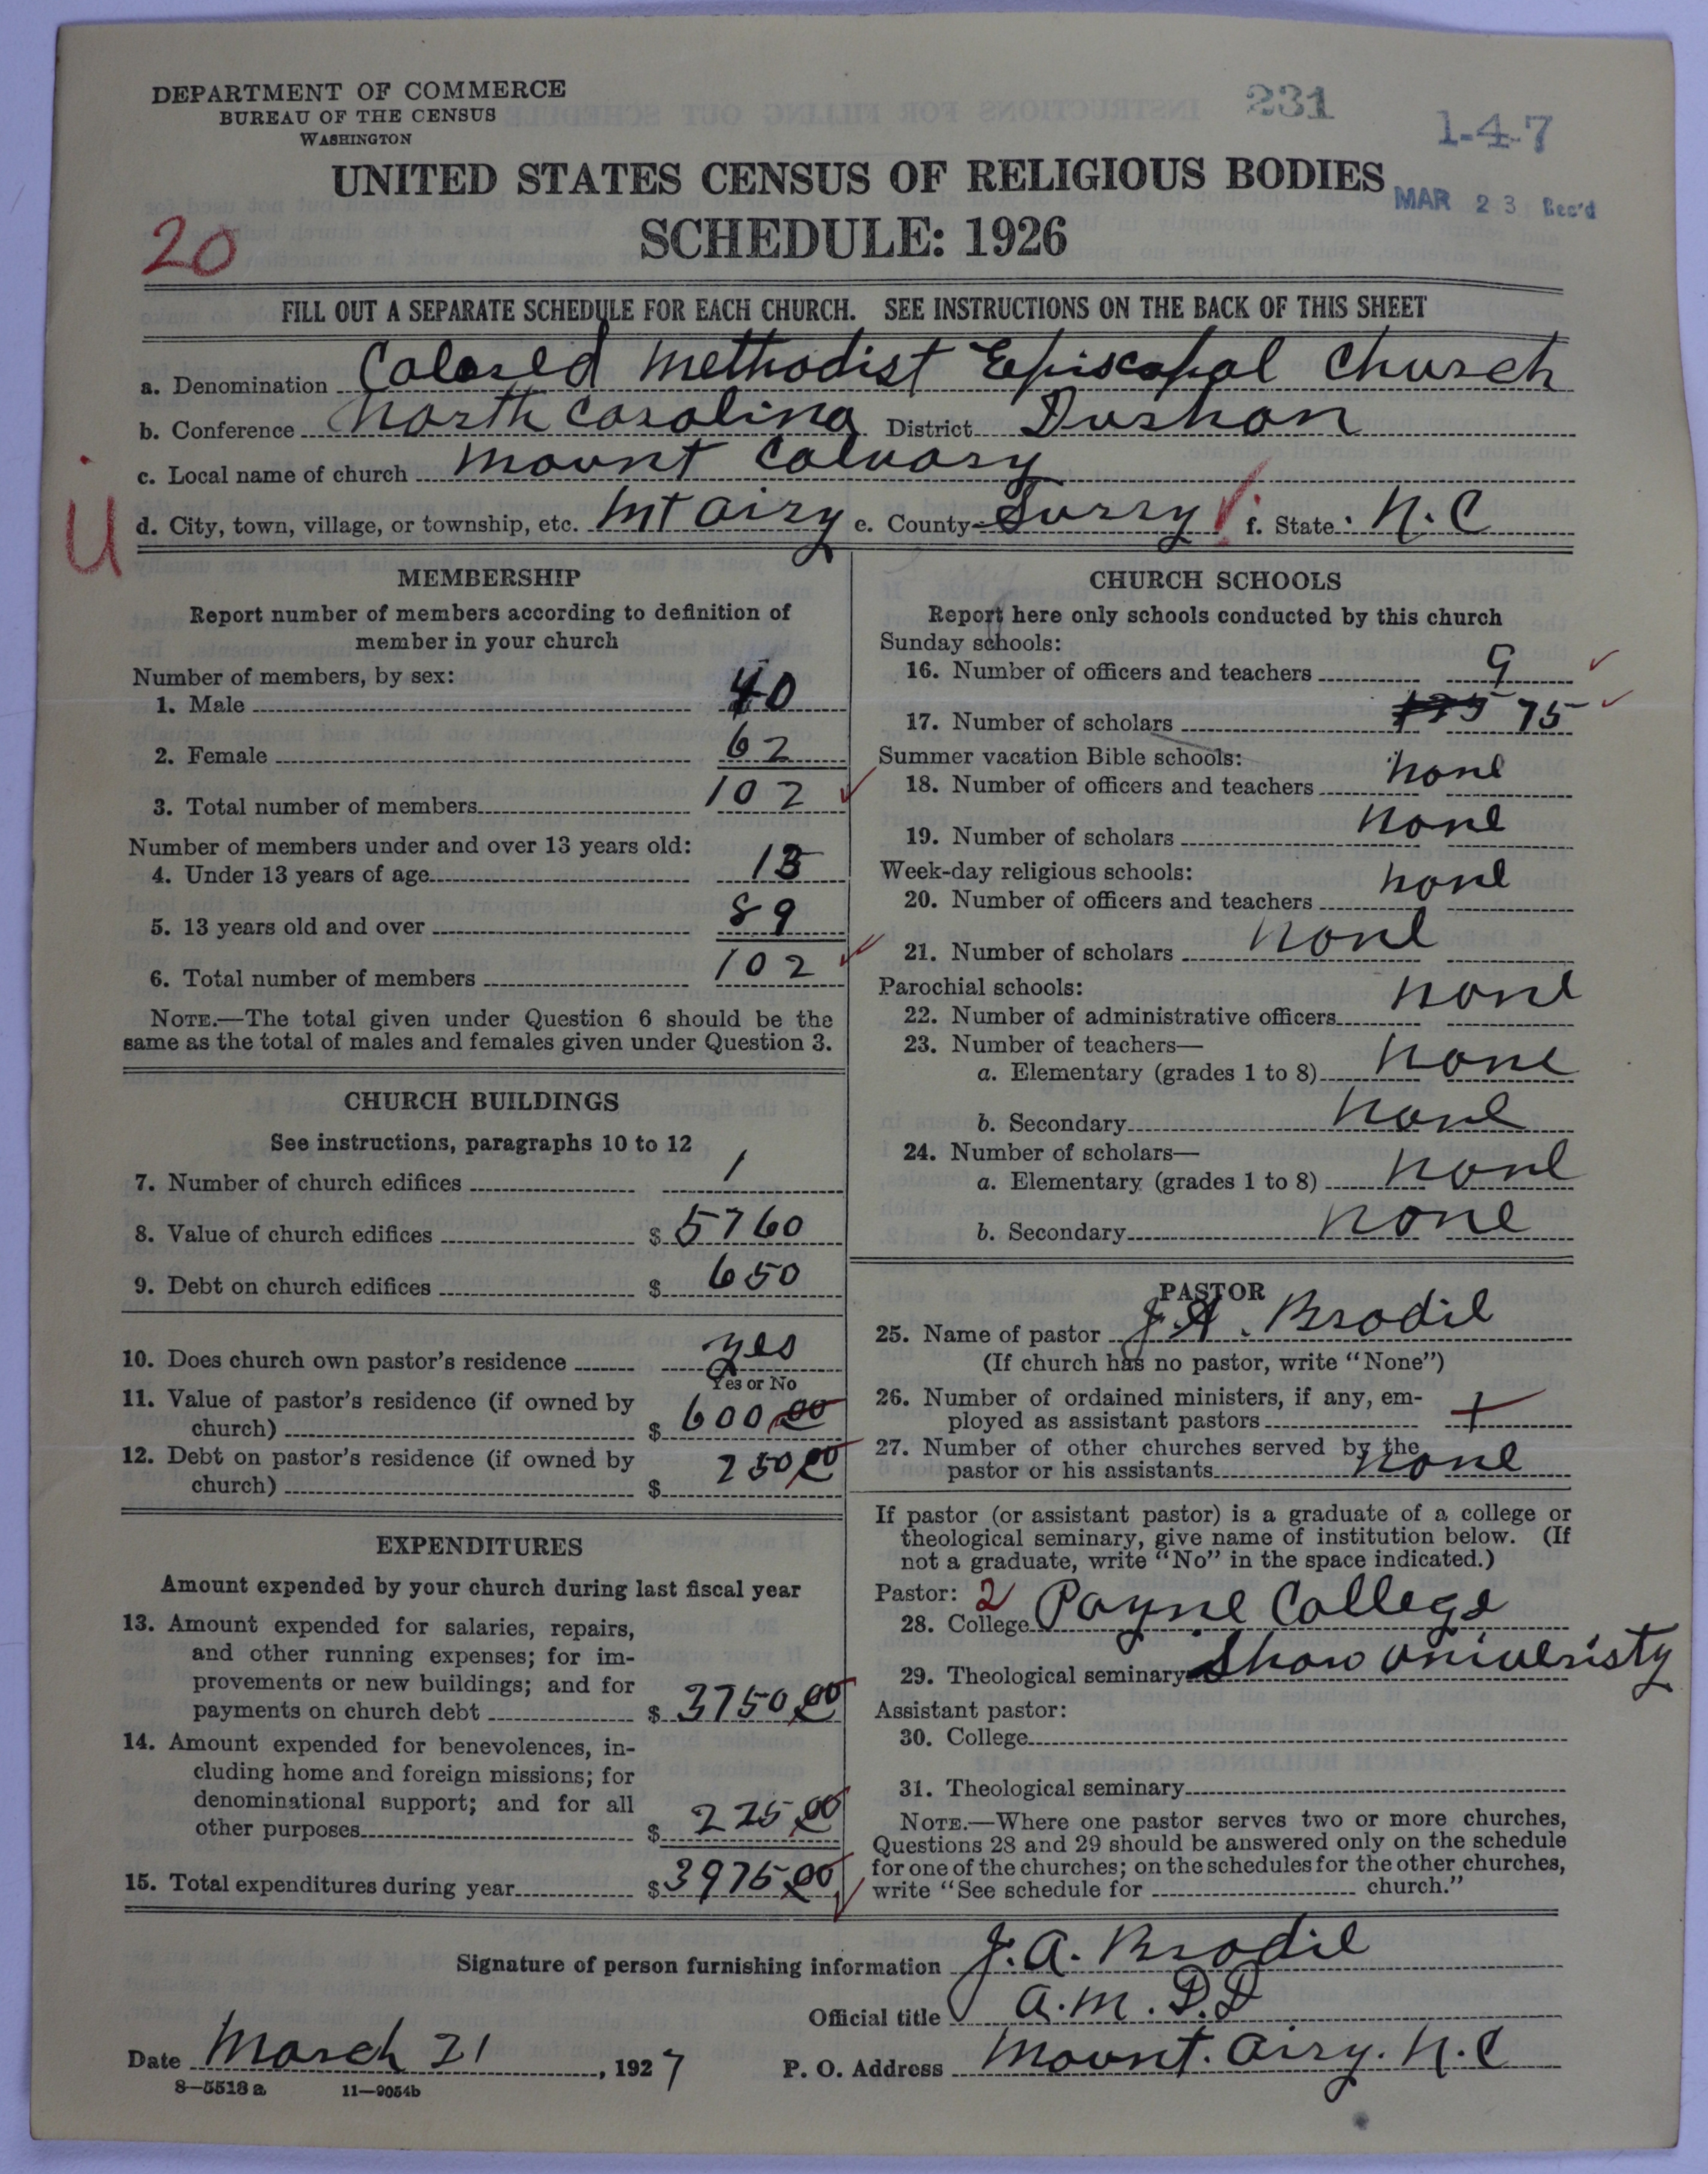 DEPARTMENT OF COMMERCE
BUREAU OF THE CENSUS
WASHINGTON
231
1-4-7
UNITED STATES CENSUS OF RELIGIOUS BODIES
MAR 23 Rec'd
20
SCHEDULE: 1926
FILL OUT A SEPARATE SCHEDULE FOR EACH CHURCH. SEE INSTRUCTIONS ON THE BACK OF THIS SHEET
a. Denomination Colored Methodist Episcopal Church
b. Conference North Carolina District Durham
c. Local name of church Mount Calvary
d. City, town, village, or township, etc. Mt Airy e. County Surry f. State N.C
MEMBERSHIP
Report number of members according to definition of
member in your church
Number of members, by sex:
1. Male 40
2. Female 62
3. Total number of members 102
Number of members under and over 13 years old:
4. Under 13 years of age 13
5. 13 years old and over 89
6. Total number of members 102
NOTE.—The total given under Question 6 should be the
same as the total of males and females given under Question 3.
CHURCH BUILDINGS
See instructions, paragraphs 10 to 12
7. Number of church edifices 1
8. Value of church edifices $ 5760
9. Debt on church edifices $ 650
10. Does church own pastor's residence yes
Yes or No
11. Value of pastor's residence (if owned by
church) $ 600.00
12. Debt on pastor's residence (if owned by
church) $ 250.00
EXPENDITURES
Amount expended by your church during last fiscal year
13. Amount expended for salaries, repairs,
and other running expenses; for im-
provements or new buildings; and for
payments on church debt $ 3750.00
14. Amount expended for benevolences, in-
cluding home and foreign missions; for
denominational support; and for all
other purposes $ 225.00
15. Total expenditures during year $ 3975.00
CHURCH SCHOOLS
Report here only schools conducted by this church
Sunday schools:
16. Number of officers and teachers 9
17. Number of scholars 75
Summer vacation Bible schools:
18. Number of officers and teachers none
19. Number of scholars none
Week-day religious schools:
20. Number of officers and teachers none
21. Number of scholars none
Parochial schools:
22. Number of administrative officers none
23. Number of teachers—
a. Elementary (grades 1 to 8) none
b. Secondary none
24. Number of scholars—
a. Elementary (grades 1 to 8) none
b. Secondary none
PASTOR
25. Name of pastor J.A. Brodil
(If church has no pastor, write "None")
26. Number of ordained ministers, if any, em-
ployed as assistant pastors
27. Number of other churches served by the
pastor or his assistants none
If pastor (or assistant pastor) is a graduate of a college or
theological seminary, give name of institution below. (If
not a graduate, write "No" in the space indicated.)
Pastor: 2
28. College Payne College
29. Theological seminary Shaw Univeristy
Assistant pastor:
30. College
31. Theological seminary
NOTE.—Where one pastor serves two or more churches,
Questions 28 and 29 should be answered only on the schedule
for one of the churches; on the schedules for the other churches,
write "See schedule for church."
Signature of person furnishing information J.A. Brodil
Official title A.M. D.D
Date March 21, 1927 P. O. Address Mount. Airy. N.C
8—5518 a 11—9054b